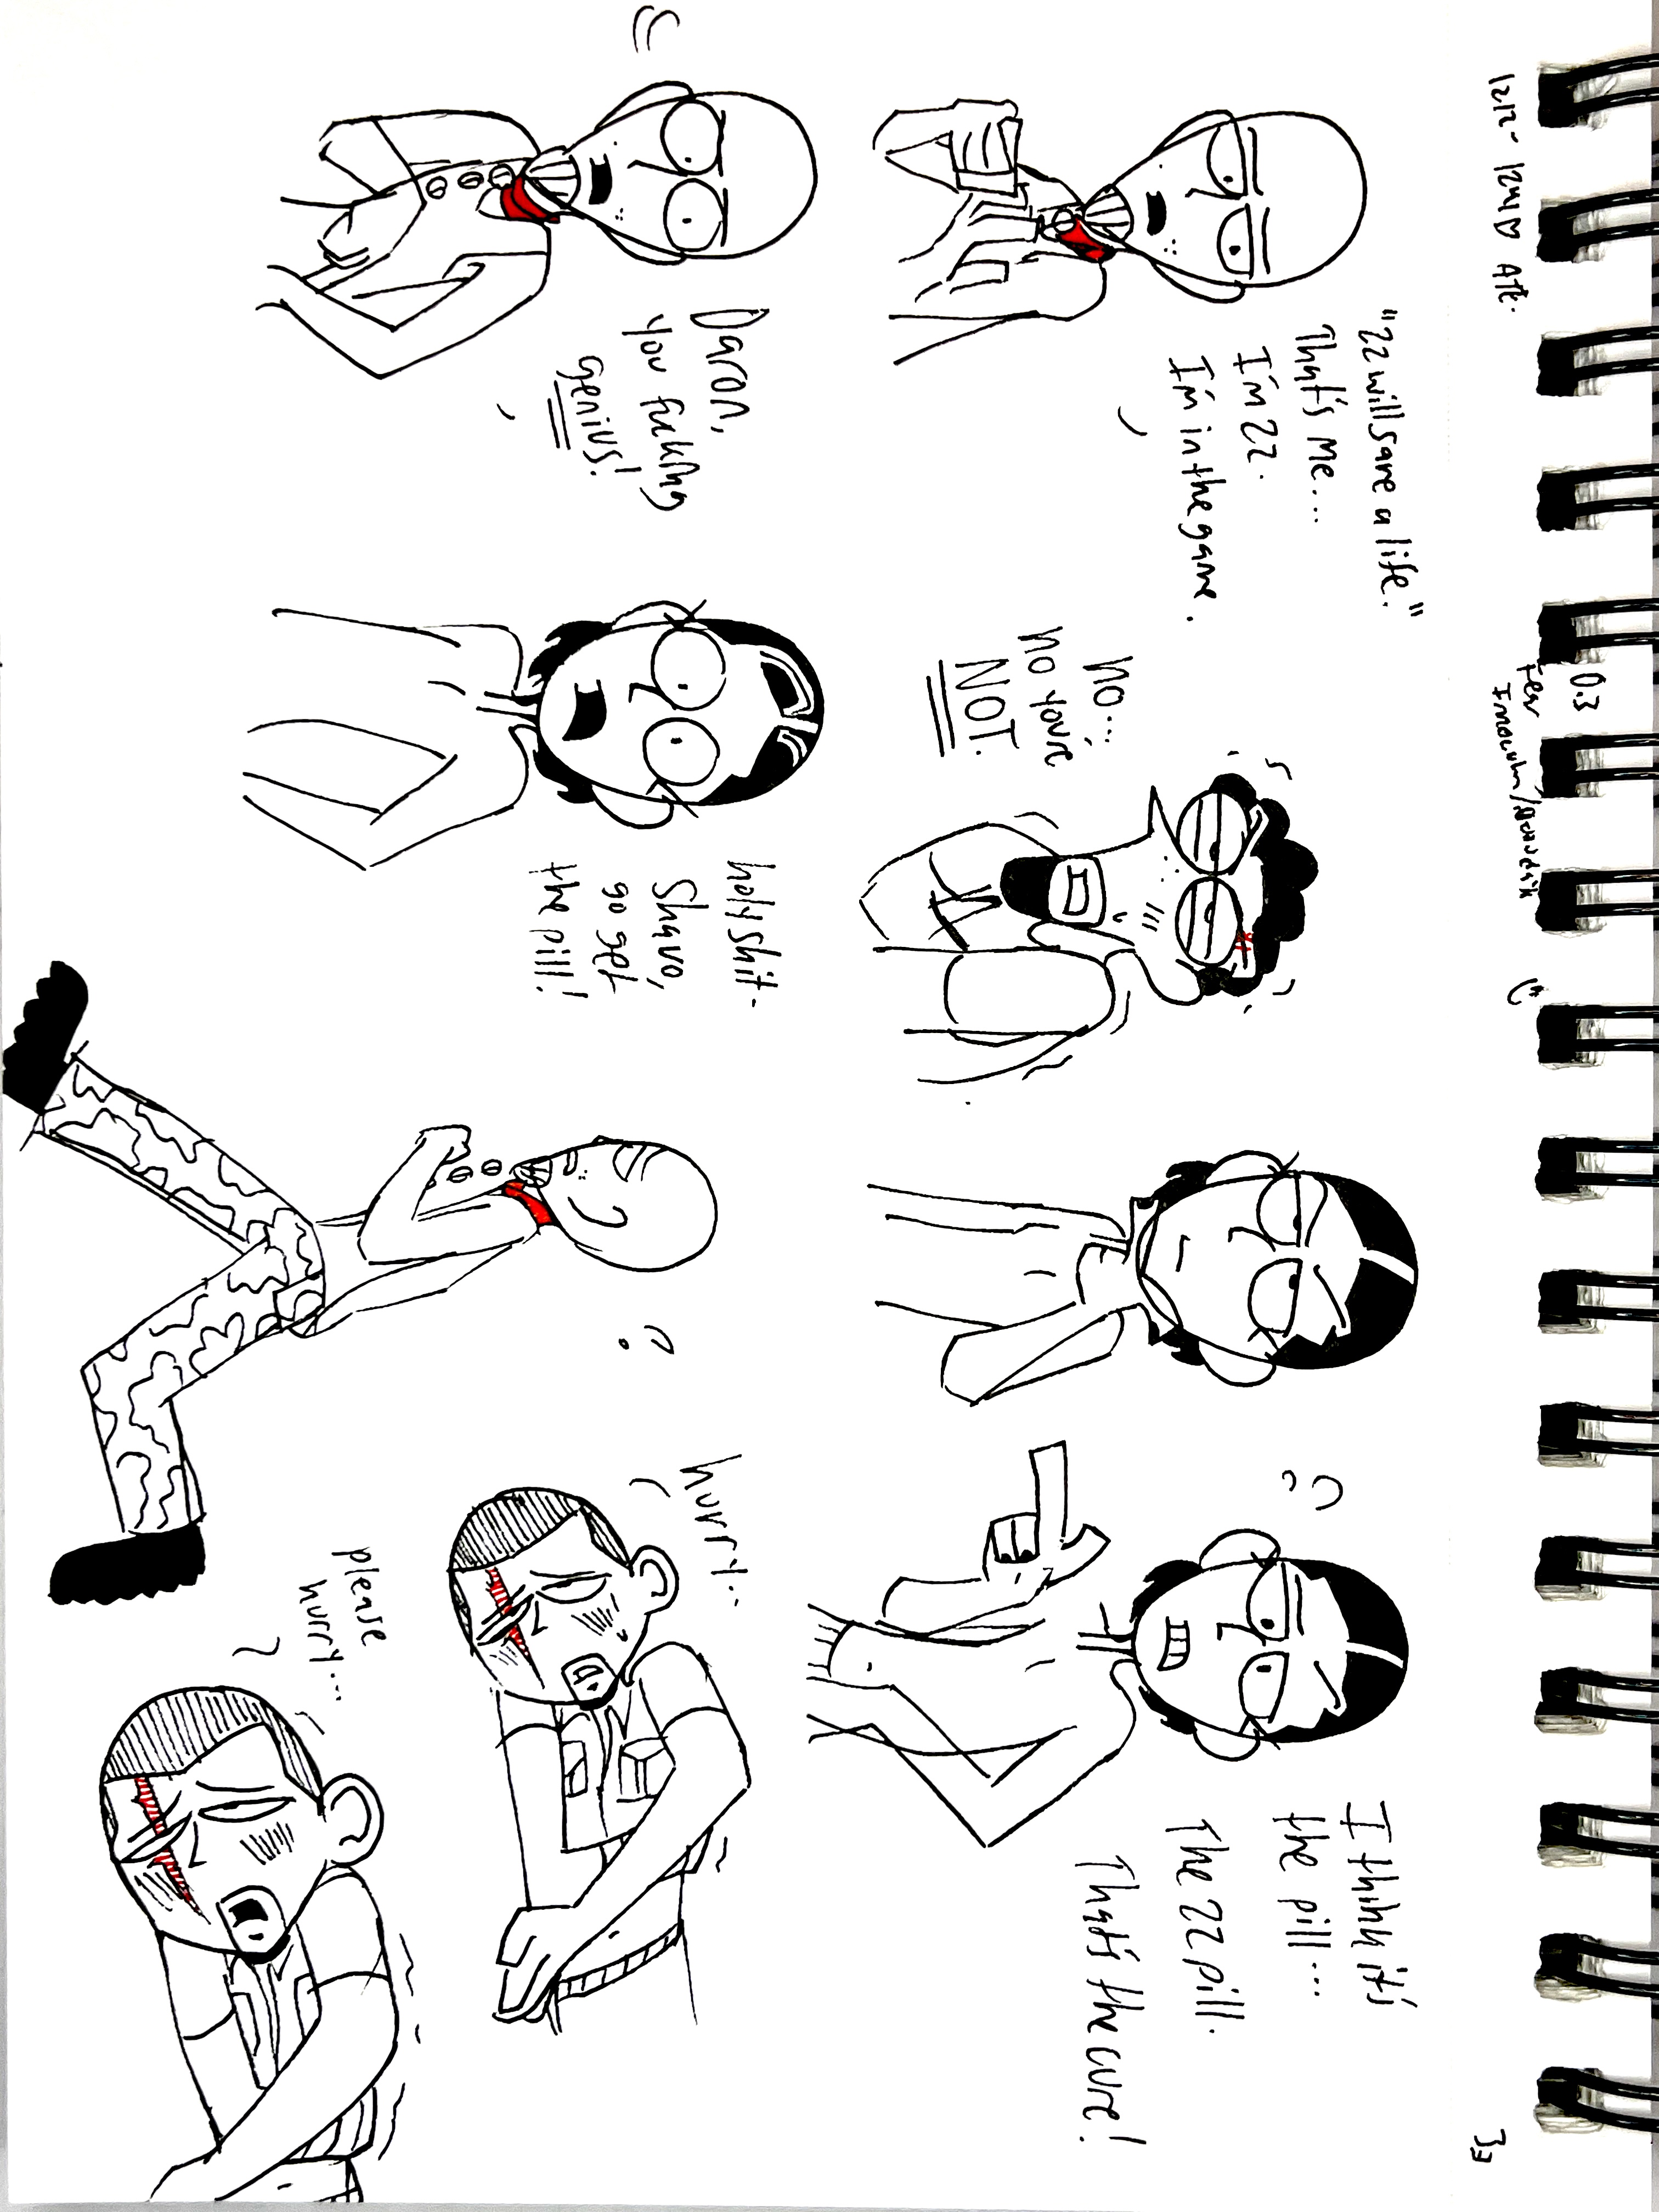 0.3
1212- 1241♡ ATE.
Fear
33
"22 will save a life."
That's me...
I'm 22.
I'm in the game.
no...
no you're
NOT.
I think it's
the pill...
The 22 pill.
That's the cure!
Daron,
you fucking
genius!
holy shit-
Shavo,
go get
the pill!
?
hurry...
please
hurry...